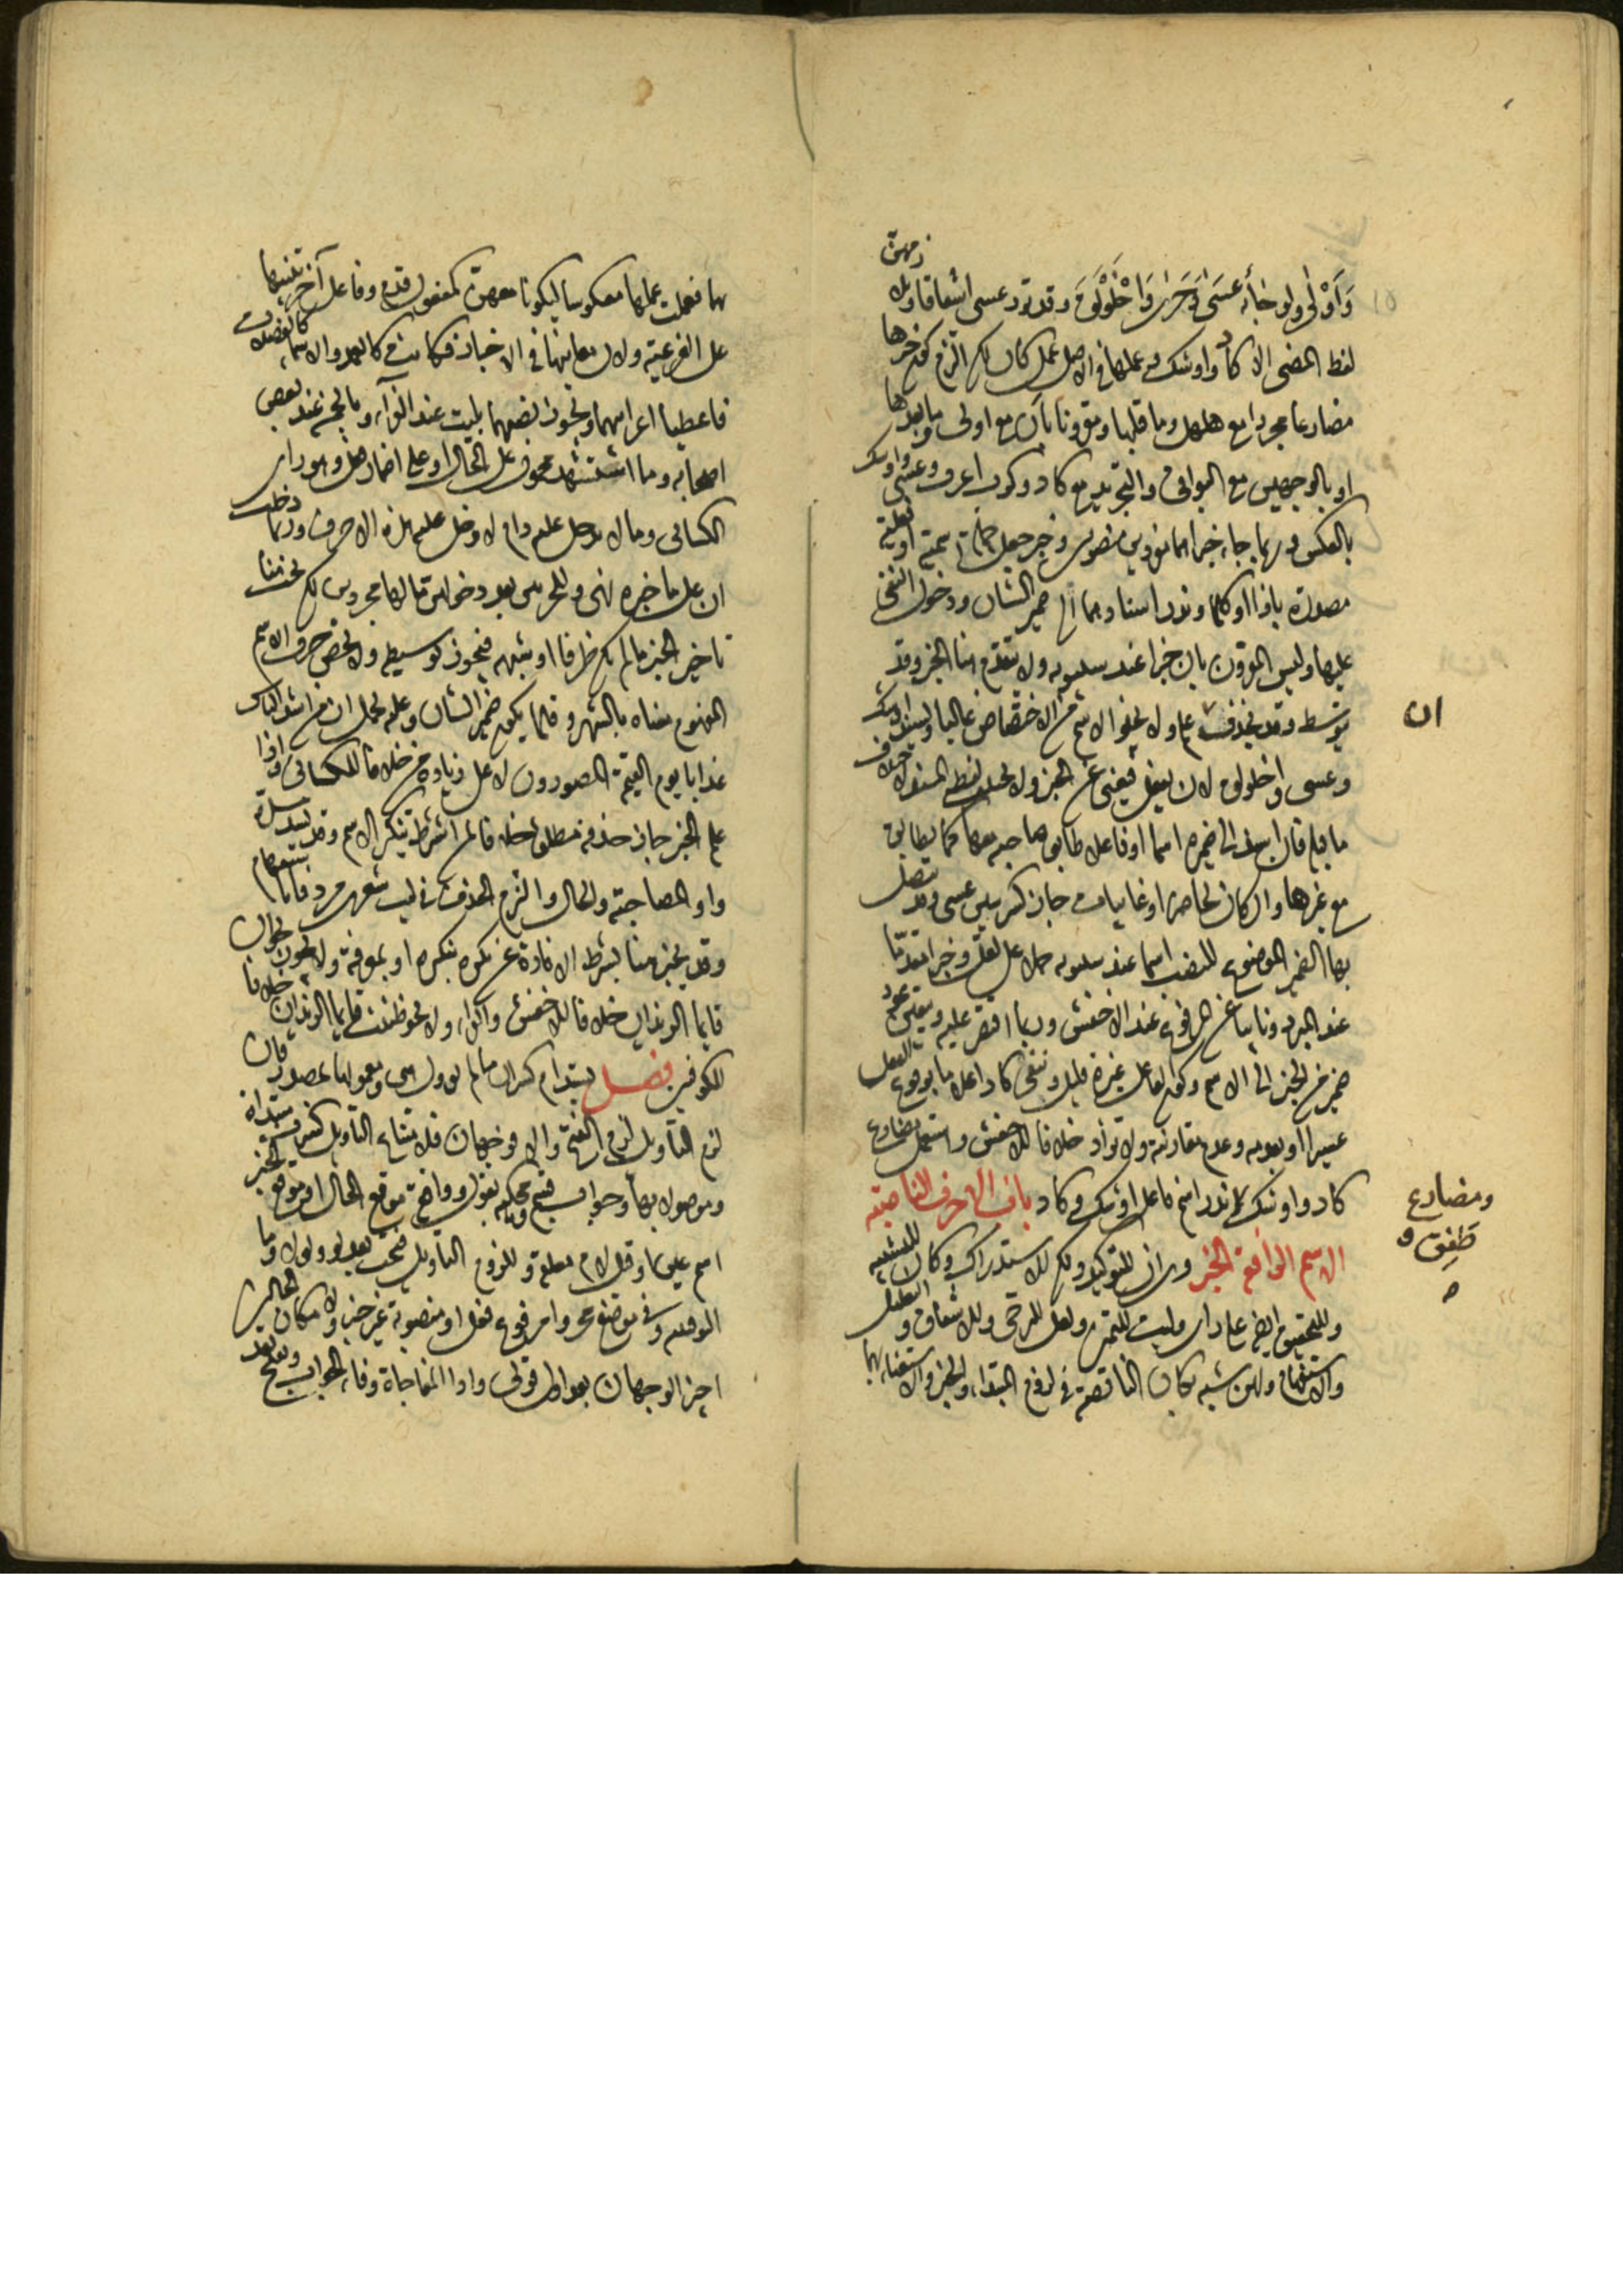 وَأَوْلَى ولدنوها عَسَى وَحَرَى وَاخْلَوْلَقَ وقد ترد عسى اشفاقا ويلازمهن
لفظ المضى الا كاد واوشك وعملها فى الاصل عمل كان لكن التزم كون خبرها
مضارعا مجردا مع هلهل وما قبلها ومقرونا بان مع اولى وما بعدها
او بالوجهين مع البواقى والتجريد مع كاد وكرب اعرف وعسى واوشك
بالعكس وربما جاء خبراهما مفردين منصوبين وخبر جعل جملة اسمية او فعلية
مصدرة باذا او كلما وندر اسنادهما الى ضمير الشان ودخول النفى
عليها وليس المقرون بان خبرا عند سيبويه ولا يتقدم هنا الخبر وقد
يتوسط وقد يحذف ان علم ولا يخلو الاسم من الاختصاص غالبا ويسند اوشك
وعسى واخلولق لان يفعل فيغنى عن الخبر ولا يختلف لفظ المسند لاختلاف
ما قبله فان اسند الى ضميره اسما او فاعلا طابق صاحبه معها كما يطابق
مع غيرها وان كان لحاضر او غايبات جاز كسر سين عسى وقد يتصل
بها الضمير الموضوع للنصب اسما عند سيبويه حملا على لعل وخبرا مقدما
عند المبرد ونايبا عن المرفوع عند الاخفش وربما اقتصر عليه ويتعين عود
ضمير من الخبر الى الاسم وكون الفاعل غيره قليل وتنفى كاد اعلاما بوقوع الفعل
عسيرا او بعدمه وعدم مقاربته ولا تزاد خلافا للاخفش واستعمل مضارع
كاد واوشك وندر اسم فاعل اوشك وكاد باب الاحرف الناصبة
الاسم الرافعة الخبر وهى ان للتوكيد ولكن للاستدراك وكان للتشبيه
وللتحقيق ايضا على راى وليت للتمنى ولعل للترجى وللاشفاق والتعليل
والاستفهام ولهن شبه بكان الناقصة فى لزوم المبتدا والخبر والاستغناء بهما
ان
ومضارع
طَفِق
بهما فعملت عملها معكوسا ليكونا معهن كمفعول قدم وفاعل آخر تنبيها
على الفرعية ولان معانيها فى الاخبار فكانت كالعمد والاسماء كالفضلات
فاعطيا اعرابيهما ويجوز نصبهما بليت عند الفراء وبالجميع عند بعض
اصحابه وما استشهد به محمول على الحال او على اضمار فعل وهو راى
الكسائى وما لا تدخل عليه دام لا تدخل عليه هذه الاحرف وربما دخلت
ان على ما خبره نهى وللجزئين بعد دخولهن ما لهما مجردين لكن يجب هنا
تاخير الخبر ما لم يكن ظرفا او شبهه فيجوز توسيطه ولا يخص حذف الاسم
المفهوم معناه بالشعر وقلما يكون ضمير الشان وعليه يحمل ان من اشد الناس
عذابا يوم القيمة المصورون لا على زيادة من خلافا للكسائى واذا
علم الخبر جاز حذفه مطلقا خلافا لمن اشترط تنكير الاسم وقد يسد مسده
واو المصاحبة والحال والتزم الحذف فى ليت شعرى مردفا باستفهام
وقد يخبر هنا بشرط الافادة عن نكرة بنكرة او بمعرفة ولا يجوز نحو ان
قايما الزيدان خلافا للاخفش والفراء ولا نحو ظننت قايما الزيدان خلافا
للكوفيين فصل يستدام كسر ان ما لم تؤول هى ومعمولها بمصدر فان
لزم التاويل لزم الفتح والا فوجهان فلامتناع التاويل كسرت مبتداة
وموصولا بها وجواب قسم ومحكية بقول وواقعة موقع الحال او موقع خبر
اسم عين او قبل لام معلقة وللزوم التاويل فتحت بعد لو ولولا وما
التوقيتية وفى موضع مجرور او مرفوع فعل او منصوبه غير خبر ولامكان الحالين
اجيز الوجهان بعد اول قولى واذا المفاجاة وفاء الجواب وتفتح بعد